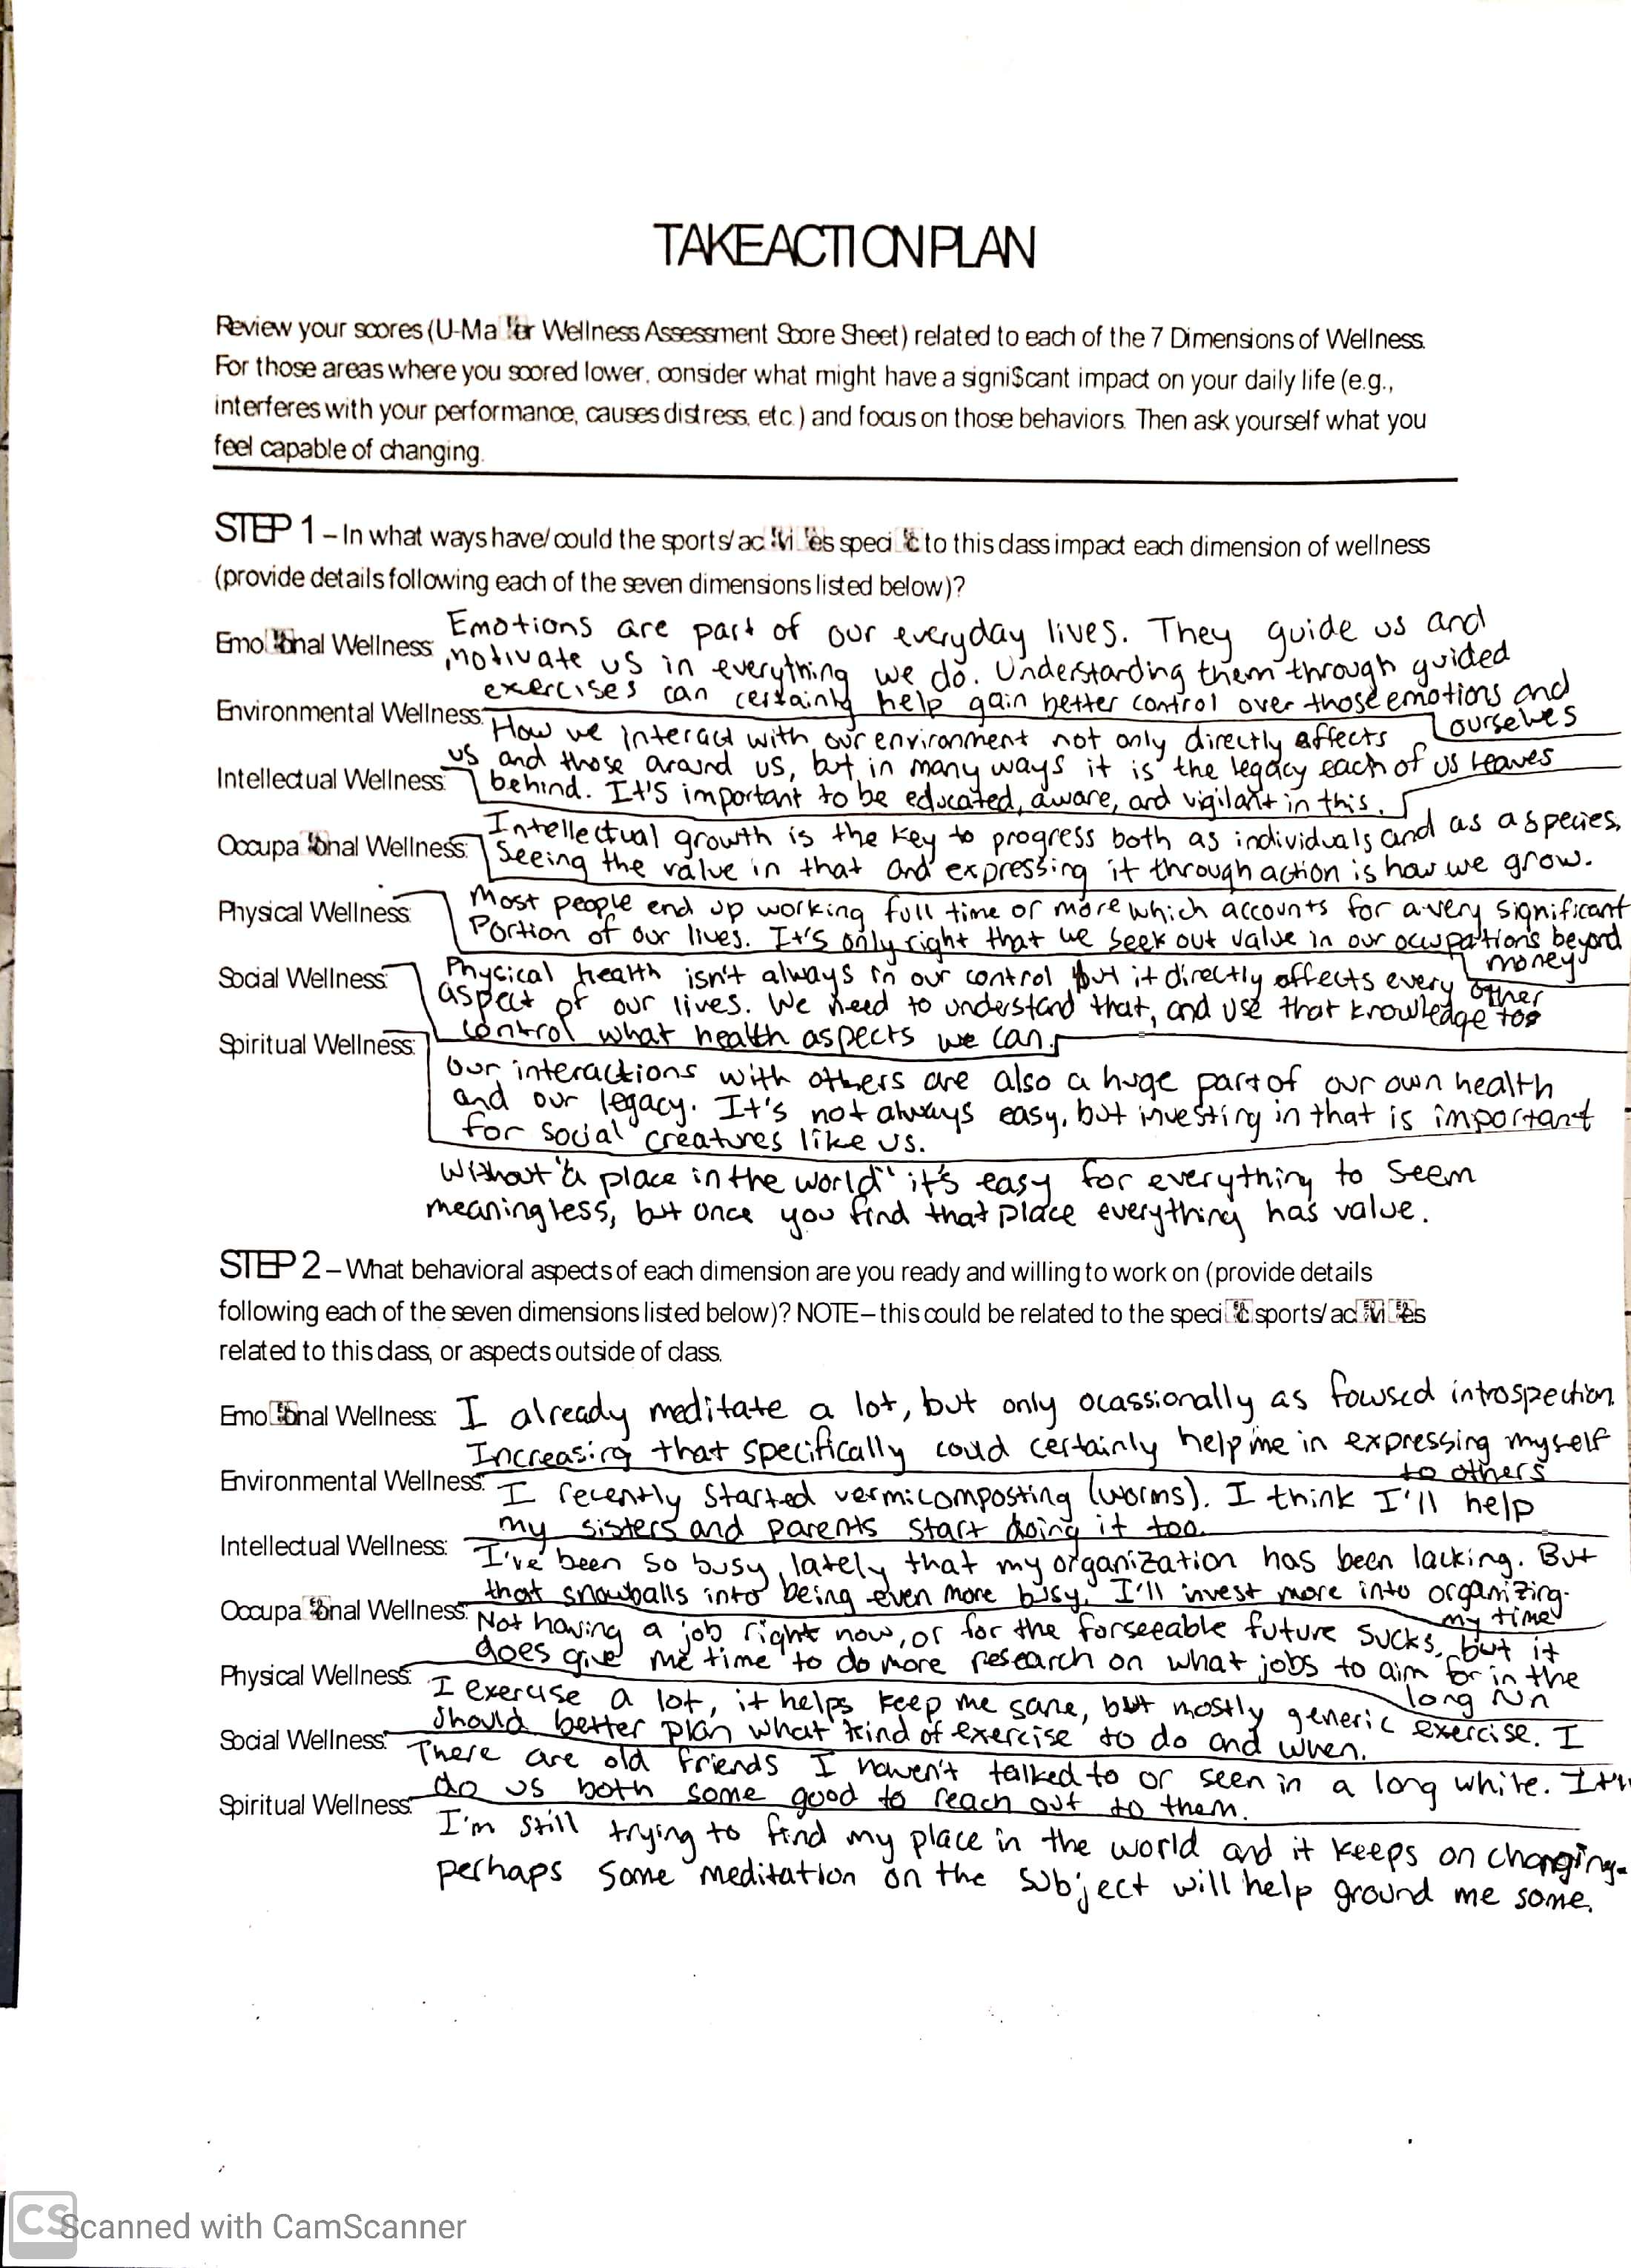 TAKE ACTION PLAN
Review your scores (U-Matter Wellness Assessment Score Sheet) related to each of the 7 Dimensions of Wellness.
For those areas where you scored lower, consider what might have a signi$cant impact on your daily life (e.g.,
interferes with your performance, causes distress, etc.) and focus on those behaviors. Then ask yourself what you
feel capable of changing.
STEP 1 – In what ways have/could the sports/activities specific to this class impact each dimension of wellness
(provide details following each of the seven dimensions listed below)?
Emotional Wellness: Emotions are part of our everyday lives. They guide us and
motivate us in everything we do. Understanding them through guided
exercises can certainly help gain better control over those emotions and
ourselves
Environmental Wellness: How we interact with our environment not only directly affects
us and those around us, but in many ways it is the legacy each of us leaves
behind. It's important to be educated, aware, and vigilant in this.
Intellectual Wellness: Intellectual growth is the key to progress both as individuals and as a species,
Seeing the value in that and expressing it through action is how we grow.
Occupational Wellness: Most people end up working full time or more which accounts for a very significant
Portion of our lives. It's only right that we seek out value in our occupations beyond
money
Physical Wellness: Physical health isn't always in our control but it directly affects every other
aspect of our lives. We need to understand that, and use that knowledge too
control what health aspects we can.
Social Wellness: Our interactions with others are also a huge part of our own health
and our legacy. It's not always easy, but investing in that is important
for social creatures like us.
Spiritual Wellness: Without "a place in the world" it's easy for everything to seem
meaningless, but once you find that place everything has value.
STEP 2 – What behavioral aspects of each dimension are you ready and willing to work on (provide details
following each of the seven dimensions listed below)? NOTE – this could be related to the specific sports/activities
related to this class, or aspects outside of class.
Emotional Wellness: I already meditate a lot, but only ocassionally as focused introspection.
Increasing that specifically could certainly help me in expressing myself
to others
Environmental Wellness: I recently started vermicomposting (worms). I think I'll help
my sisters and parents start doing it too.
Intellectual Wellness: I've been so busy lately that my organization has been lacking. But
that snowballs into being even more busy. I'll invest more into organizing
my time
Occupational Wellness: Not having a job right now, or for the forseeable future sucks, but it
does give me time to do more research on what jobs to aim for in the
long run
Physical Wellness: I exercise a lot, it helps keep me sane, but mostly generic exercise. I
should better plan what kind of exercise to do and when.
Social Wellness: There are old friends I haven't talked to or seen in a long while. It'll
do us both some good to reach out to them.
Spiritual Wellness: I'm still trying to find my place in the world and it keeps on changing.
perhaps some meditation on the subject will help ground me some.
CS Scanned with CamScanner